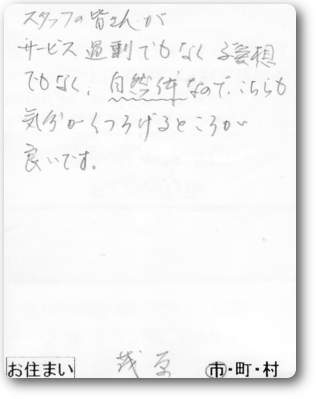 スタッフの皆さんが
サービス過剰でもなく 無愛想
でもなく、自然体なので、こちらも
気分がくつろげるところが
良いです。
お住まい 茂原 市・町・村